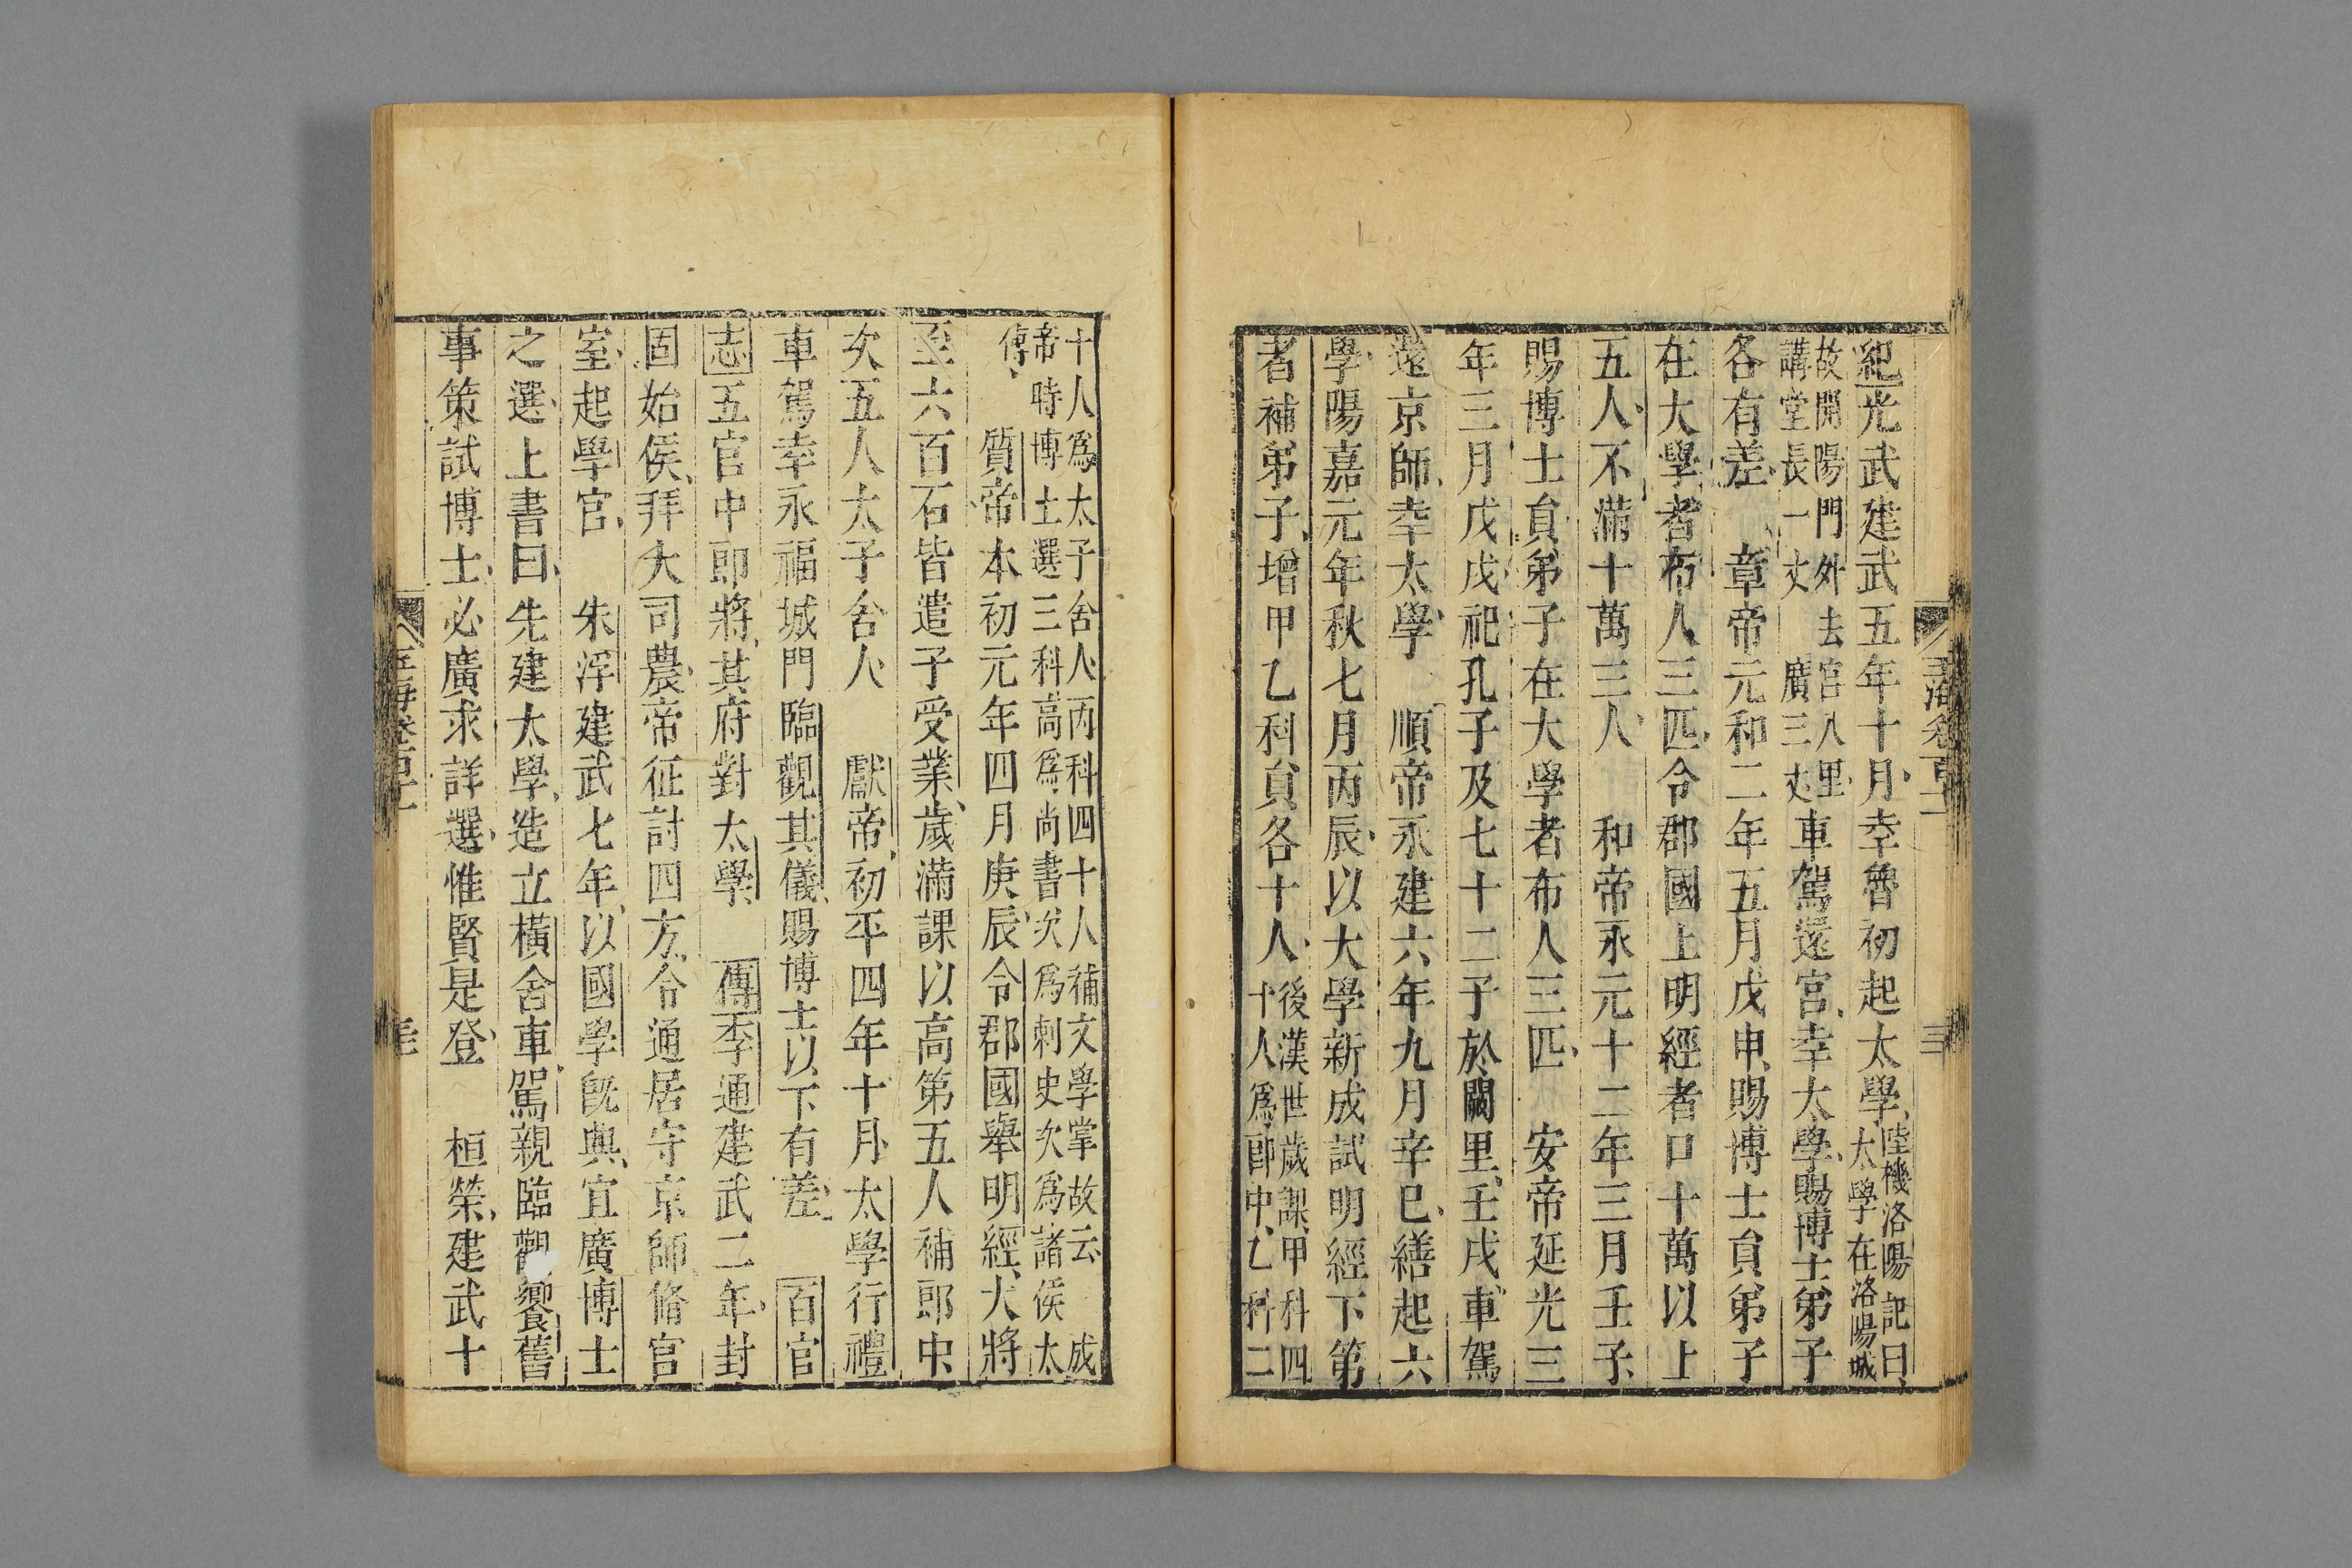 紀光武建武五年十月幸魯初起太學陸機洛陽記曰太學在洛陽城
故開陽門外去宮八里講堂長一丈廣三丈車駕還宮幸太學賜博士弟子
各有差　章帝元和二年五月戊申賜博士員弟子
在大學者布人三匹令郡國上明經者口十萬以上
五人不滿十萬三人　和帝永元十二年三月壬子
賜博士員弟子在大學者布人三匹　安帝延光三
年三月戊戌祀孔子及七十二子於闕里壬戌車駕
還京師幸太學　順帝永建六年九月辛巳繕起六
學陽嘉元年秋七月丙辰以大學新成試明經下第
者補弟子增甲乙科員各十人後漢世歲課甲科四十人爲郎中乙科二
玉海卷百十一
三
十人爲太子舍人丙科四十人補文學掌故云　成帝時博士選三科高爲尚書次爲刺史次爲諸侯太
傅　質帝本初元年四月庚辰令郡國舉明經大將
至六百石皆遣子受業歲滿課以高第五人補郎中
次五人太子舍人　獻帝初平四年十月太學行禮
車駕幸永福城門臨觀其儀賜博士以下有差　百官
志五官中郎將其府對太學　傳李通建武二年封
固始侯拜大司農帝征討四方令通居守京師脩宮
室起學官　朱浮建武七年以國學旣興宜廣博士
之選上書曰先建太學造立橫舍車駕親臨觀饗舊
事策試博士必廣求詳選惟賢是登　桓榮建武十